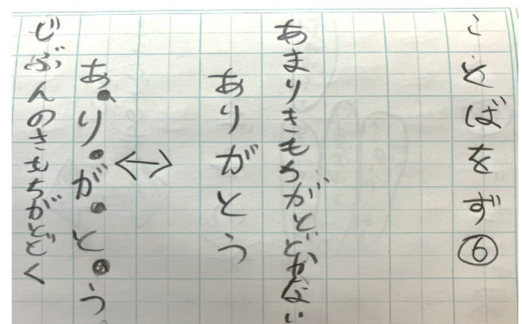 ことばをず⑥
あまりきもちがとどかない
ありがとう
↔
あ・り・が・と・う
じぶんのきもちがとどく